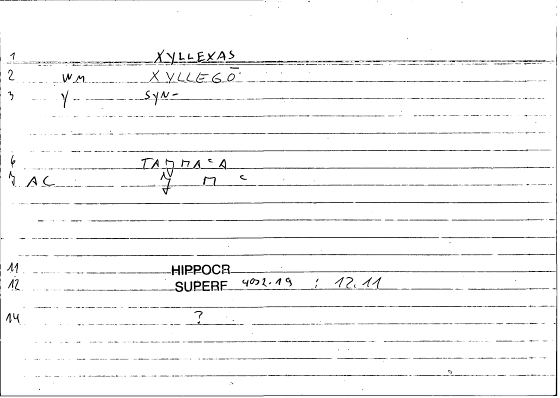 1 XYLLEXAS
2 WM XYLLEGŌ
3 Y SYN-
6
AC
11 HIPPOCR
12 SUPERF 4032.19 : 12.11
14 ?